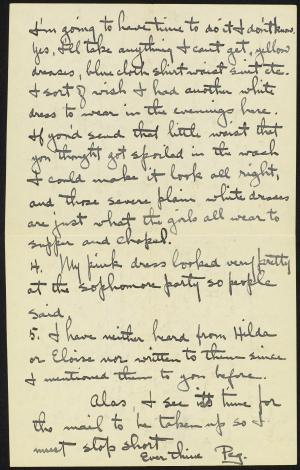 I'm going to have time to do it I don't know.
Yes, I'll take anything I can't get, yellow
dresses, blue cloth shirt waist suit etc.
I sort of wish I had another white
dress to wear in the evenings here.
If you'd send that little waist that
you thought got spoiled in the wash
I could make it look all right,
and those severe plain white dresses
are just what the girls all wear to
supper and chapel.
4. My pink dress looked very pretty
at the sophomore party so people
said.
5. I have neither heard from Hilda
or Eloise nor written to them since
I mentioned them to you before.
Alas, I see it's time for
the mail to be taken up so I
must stop short
Ever thine Peg.